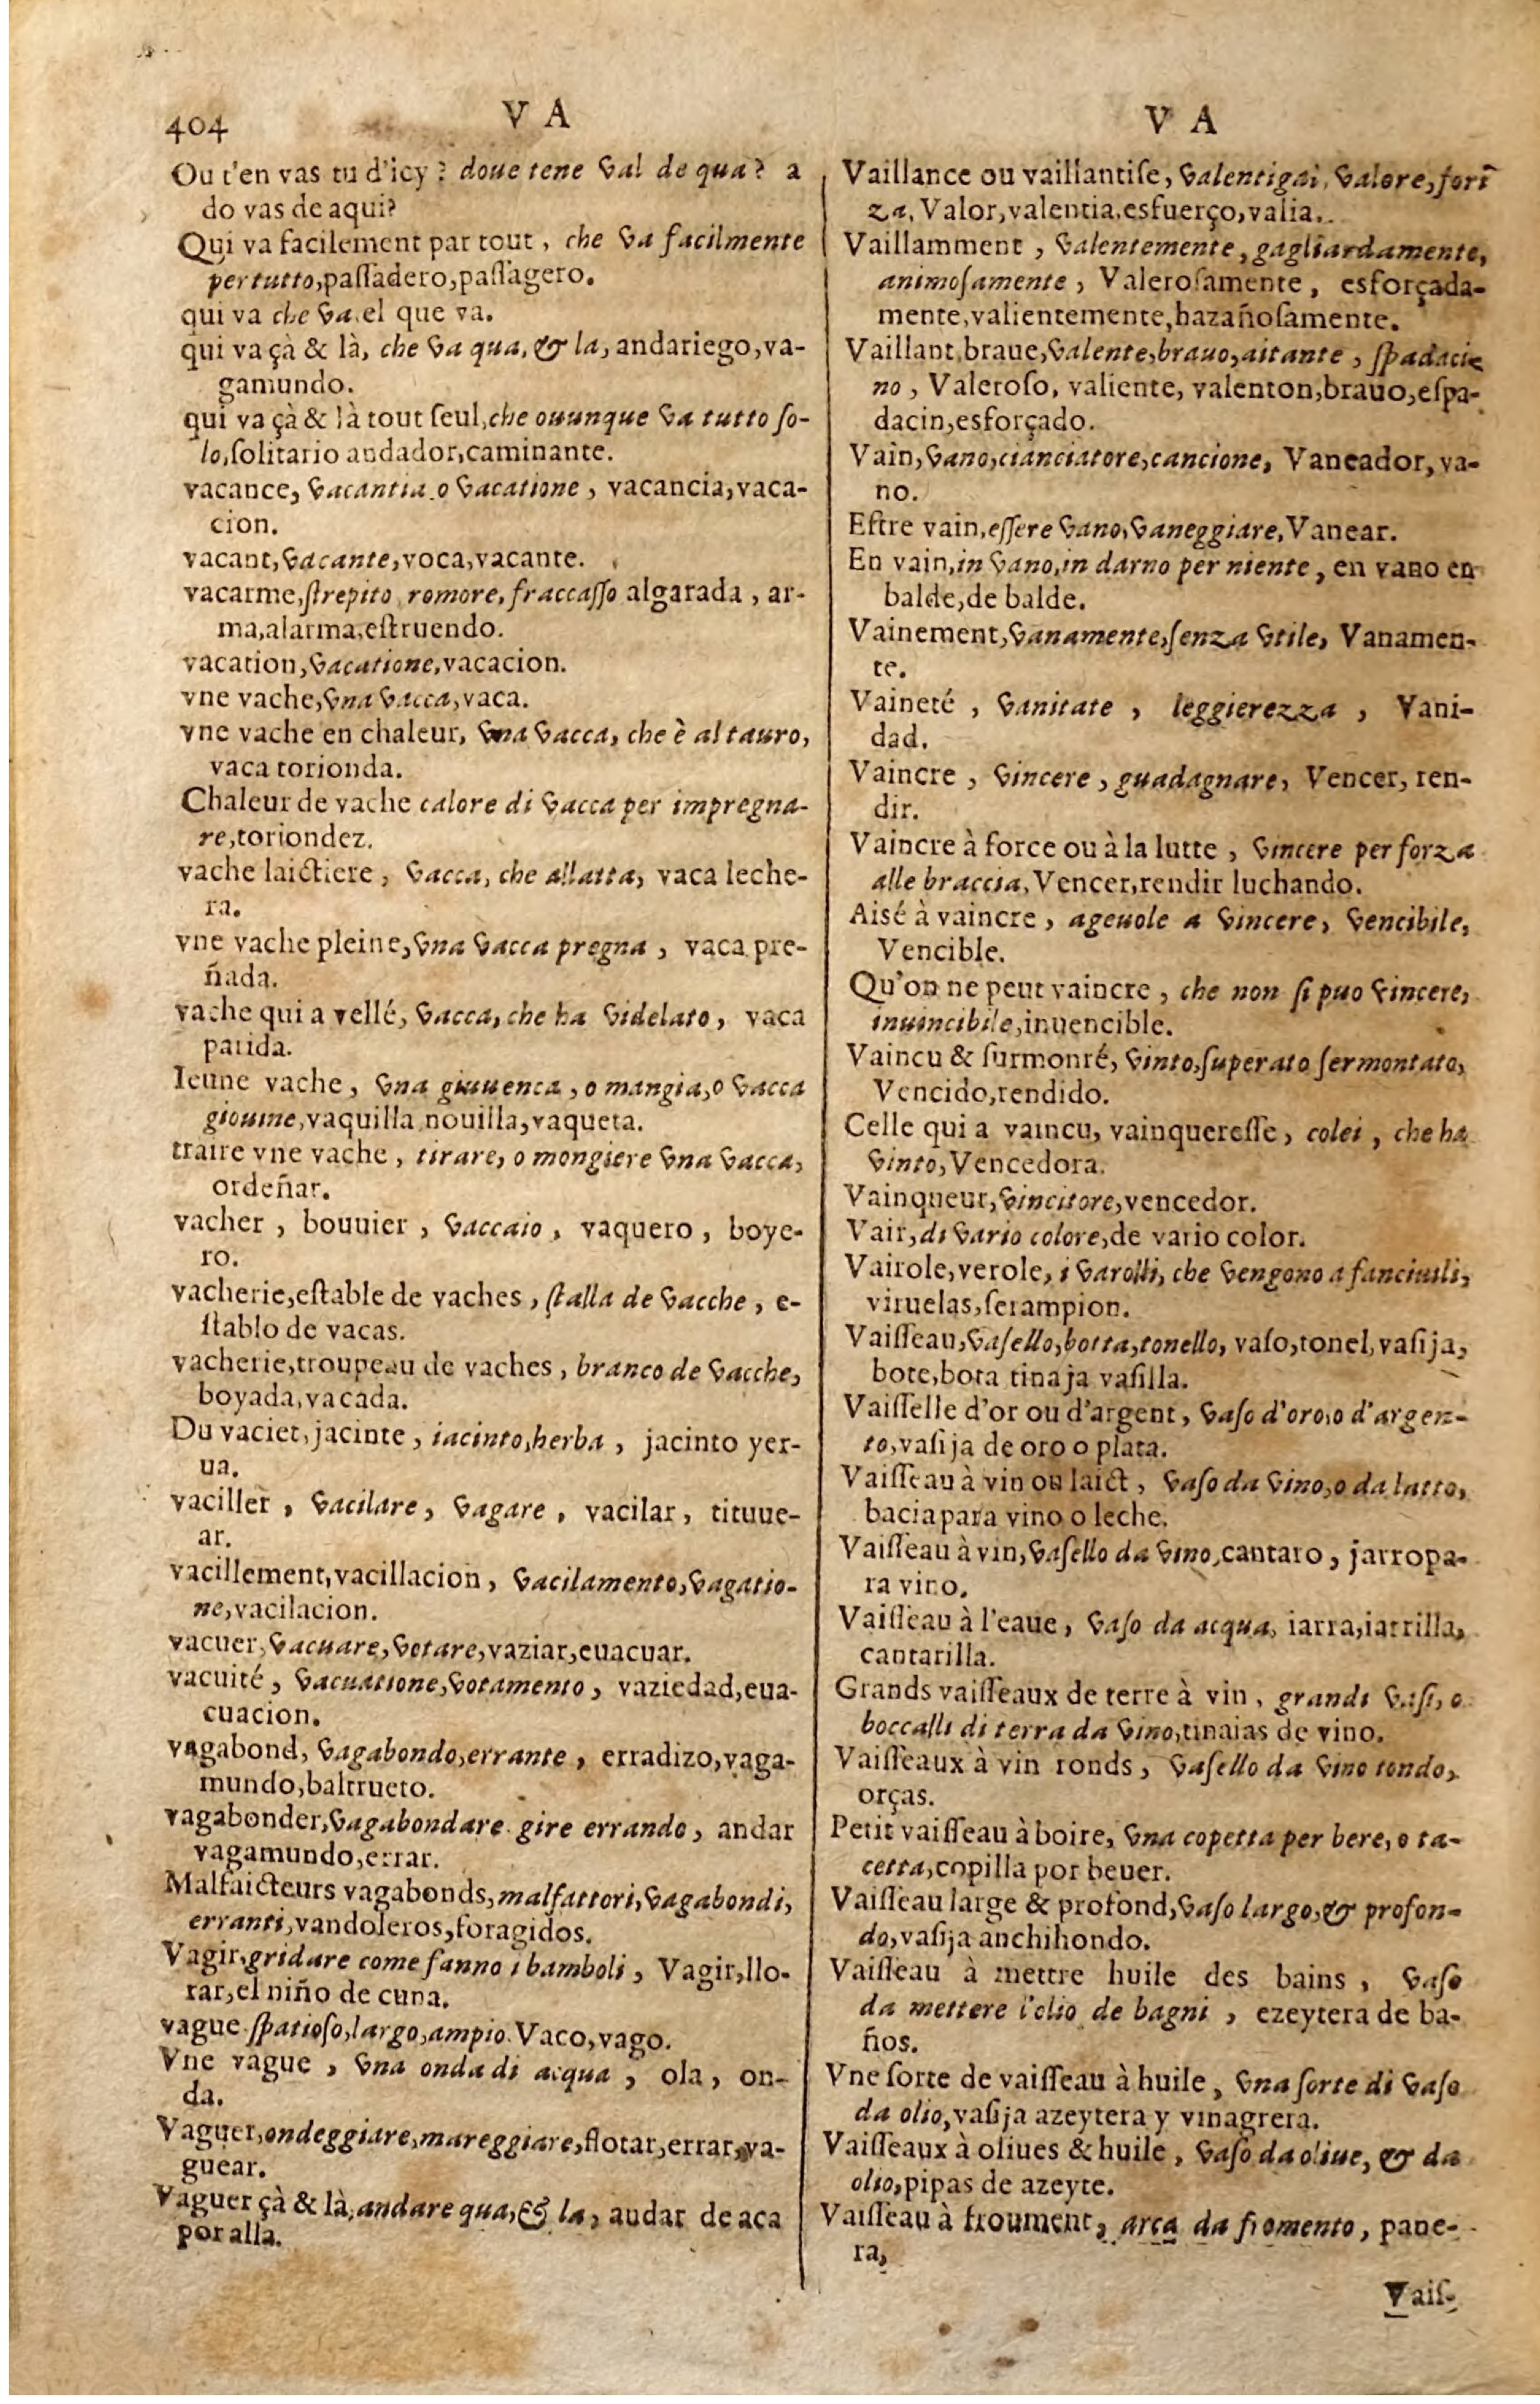 404
V A
Ou t'en vas tu d'icy? doue tene val de qua? a
do vas de aqui?
Qui va facilement par tout, che va facilmente
per tutto,paſſadero,paſſagero.
qui va che va.el que va.
qui va çà & là, che va qua, & la, andariego,va-
gamundo.
qui va çà & là tout ſeul,che ouunque va tutto ſo-
lo,ſolitario andador,caminante.
vacance, vacantia o vacatione, vacancia,vaca-
cion.
vacant,vacante,voca,vacante.
vacarme,ſtrepito romore,fraccaſſo algarada, ar-
ma,alarma,eſtruendo.
vacation,vacatione,vacacion.
vne vache,vna vacca,vaca.
vne vache en chaleur, vna vacca, che è al tauro,
vaca torionda.
Chaleur de vache calore di vacca per impregna-
re,toriondez.
vache laictiere, vacca, che allatta, vaca leche-
ra.
vne vache pleine,vna vacca pregna, vaca pre-
ñada.
vache qui a vellé, vacca, che ha videlato, vaca
parida.
Ieune vache, vna giuuenca, o mangia,o vacca
giouine,vaquilla nouilla,vaqueta.
traire vne vache, tirare, o mongiere vna vacca,
ordeñar.
vacher, bouuier, vaccaio, vaquero, boye-
ro.
vacherie,eſtable de vaches, ſtalla de vacche, e-
ſtablo de vacas.
vacherie,troupeau de vaches, branco de vacche,
boyada,vacada.
Du vaciet,jacinte, iacinto,herba, jacinto yer-
ua.
vaciller, vacilare, vagare, vacilar, tituue-
ar.
vacillement,vacillacion, vacilamento,vagatio-
ne,vacilacion.
vacuer,vacuare,votare,vaziar,euacuar.
vacuité, vacuatione,votamento, vaziedad,eua-
cuacion.
vagabond, vagabondo,errante, erradizo,vaga-
mundo,baltrueto.
vagabonder,vagabondare gire errando, andar
vagamundo,errar.
Malfaicteurs vagabonds,malfattori,vagabondi,
erranti,vandoleros,foragidos.
Vagir,gridare come fanno i bamboli, Vagir,llo-
rar,el niño de cuna.
vague ſpatioſo,largo,ampio.Vaco,vago.
Vne vague, vna onda di acqua, ola, on-
da.
Vaguer,ondeggiare,mareggiare,flotar,errar,va-
guear.
Vaguer çà & là,andare qua,& la, andar de aca
por alla.
V A
Vaillance ou vaillantiſe, valentigai, valore,fort
za, Valor,valentia,esfuerço,valia.
Vaillamment, valentemente,gagliardamente,
animoſamente, Valeroſamente, esforçada-
mente,valientemente,hazañoſamente.
Vaillant,braue,valente,brauo,aitante, ſpadaci
no, Valeroſo, valiente, valenton,brauo,eſpa-
dacin,esforçado.
Vain,vano,cianciatore,cancione, Vaneador, va-
no.
Eſtre vain,eſſere vano,vaneggiare,Vanear.
En vain,in vano,in darno per niente, en vano en
balde,de balde.
Vainement,vanamente,ſenza vtile, Vanamen-
te.
Vaineté, vanitate, leggierezza, Vani-
dad.
Vaincre, vincere, guadagnare, Vencer, ren-
dir.
Vaincre à force ou à la lutte, vincere per forza
alle braccia,Vencer,rendir luchando.
Aisé à vaincre, ageuole a vincere, vencibile,
Vencible.
Qu'on ne peut vaincre, che non ſi puo vincere,
inuincibile,inuencible.
Vaincu & ſurmonté, vinto,ſuperato ſermontato,
Vencido,rendido.
Celle qui a vaincu, vainquereſſe, colei, che ha
vinto,Vencedora.
Vainqueur,vincitore,vencedor.
Vair,di vario colore,de vario color.
Vairole,verole, i varolli, che vengono a fanciulli,
viruelas,ſerampion.
Vaiſſeau,vaſello,botta,tonello, vaſo,tonel,vaſija,
bote,bota tinaja vaſilla.
Vaiſſelle d'or ou d'argent, vaſo d'oro,o d'argen-
to,vaſija de oro o plata.
Vaiſſeau à vin ou laict, vaſo da vino,o da latto,
bacia para vino o leche.
Vaiſſeau à vin,vaſello da vino,cantaro, jarro pa-
ra vino.
Vaiſſeau à l'eaue, vaſo da acqua, iarra,iarrilla,
cantarilla.
Grands vaiſſeaux de terre à vin, grandi vaſi, o
boccalli di terra da vino,tinaias de vino.
Vaiſſeaux à vin ronds, vaſello da vino tondo,
orças.
Petit vaiſſeau à boire, vna copetta per bere, o ta-
cetta,copilla por beuer.
Vaiſſeau large & profond,vaſo largo,& profon-
do,vaſija anchihondo.
Vaiſſeau à mettre huile des bains, vaſo
da mettere l'olio de bagni, ezeytera de ba-
ños.
Vne ſorte de vaiſſeau à huile, vna ſorte di vaſo
da olio,vaſija azeytera y vinagrera.
Vaiſſeaux à oliues & huile, vaſo da oliue, & da
olio,pipas de azeyte.
Vaiſſeau à froument, arca da fromento, pane-
ra,
Vaiſ-